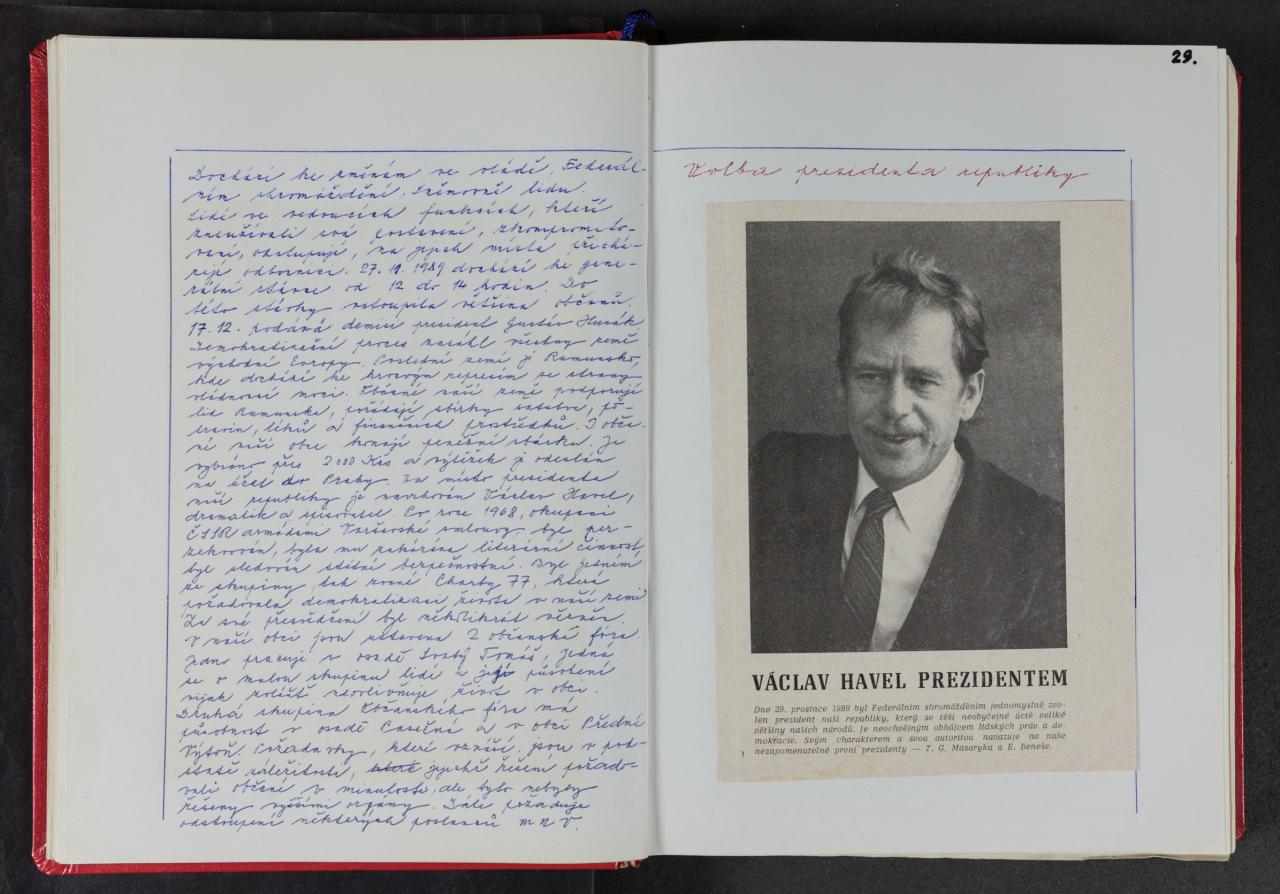 Dochází ke změnám ve vládě, Federál-
ním shromáždění, Sněmovně lidu.
Lidé ve vedoucích funkcích, kteří
zneužívali svá postavení, zkompromito-
vaní, odstupují, na jejich místa přichá-
zejí odborníci. 27. 11. 1989 dochází ke gene-
rální stávce od 12 do 14 hodin. Do
této stávky vstoupila většina občanů.
17. 12. podává demisi president Gustáv Husák
Demokratizační proces zasáhl všechny země
východní Evropy. Poslední zemí je Rumunsko,
kde dochází ke krvavým represím ze strany
vládnoucí moci. Občané naší země podporují
lid Rumunska, pořádají sbírky šatstva, po-
travin, léků a finančních prostředků. I obča-
né naší obce konají peněžní sbírku. Je
vybráno přes 2000 Kčs a výtěžek je odeslán
na účet do Prahy. Za místo presidenta
naší republiky je navrhován Václav Havel,
dramatik a spisovatel. Po roce 1968, okupaci
ČSSR armádami Varšavské smlouvy, byl per-
zekvován, byla mu zakázána literární činnost,
byl sledován státní bezpečností. Byl jedním
ze skupiny tak zvané Charty 77, která
požadovala demokratizaci života v naší zemi
Za své přesvědčení byl několikrát vězněn.
V naší obci jsou ustavena 2 občanská fóra.
Jedno pracuje v osadě Svatý Tomáš, jedná
se o malou skupinu lidí a její působení
nijak zvlášť neovlivňuje život v obci.
Druhá skupina Občanského fóra má
působnost v osadě Pasečná a v obci Přední
Výtoň. Požadavky, které vznáší, jsou v pod-
statě záležitosti, které jejichž řešení požado-
vali občané v minulosti, ale byto nebyly
řešeny vyššími orgány. Dále požaduje
odstoupení některých poslanců MNV.
29.
Volba presidenta republiky
VÁCLAV HAVEL PREZIDENTEM
Dne 29. prosince 1989 byl Federálním shromážděním jednomyslně zvo-
len prezident naší republiky, který se těší neobyčejné úctě veliké
většiny našich národů. Je neochvějným obhájcem lidských práv a de-
mokracie. Svým charakterem a svou autoritou navazuje na naše
nezapomenutelné první prezidenty — T. G. Masaryka a E. Beneše.